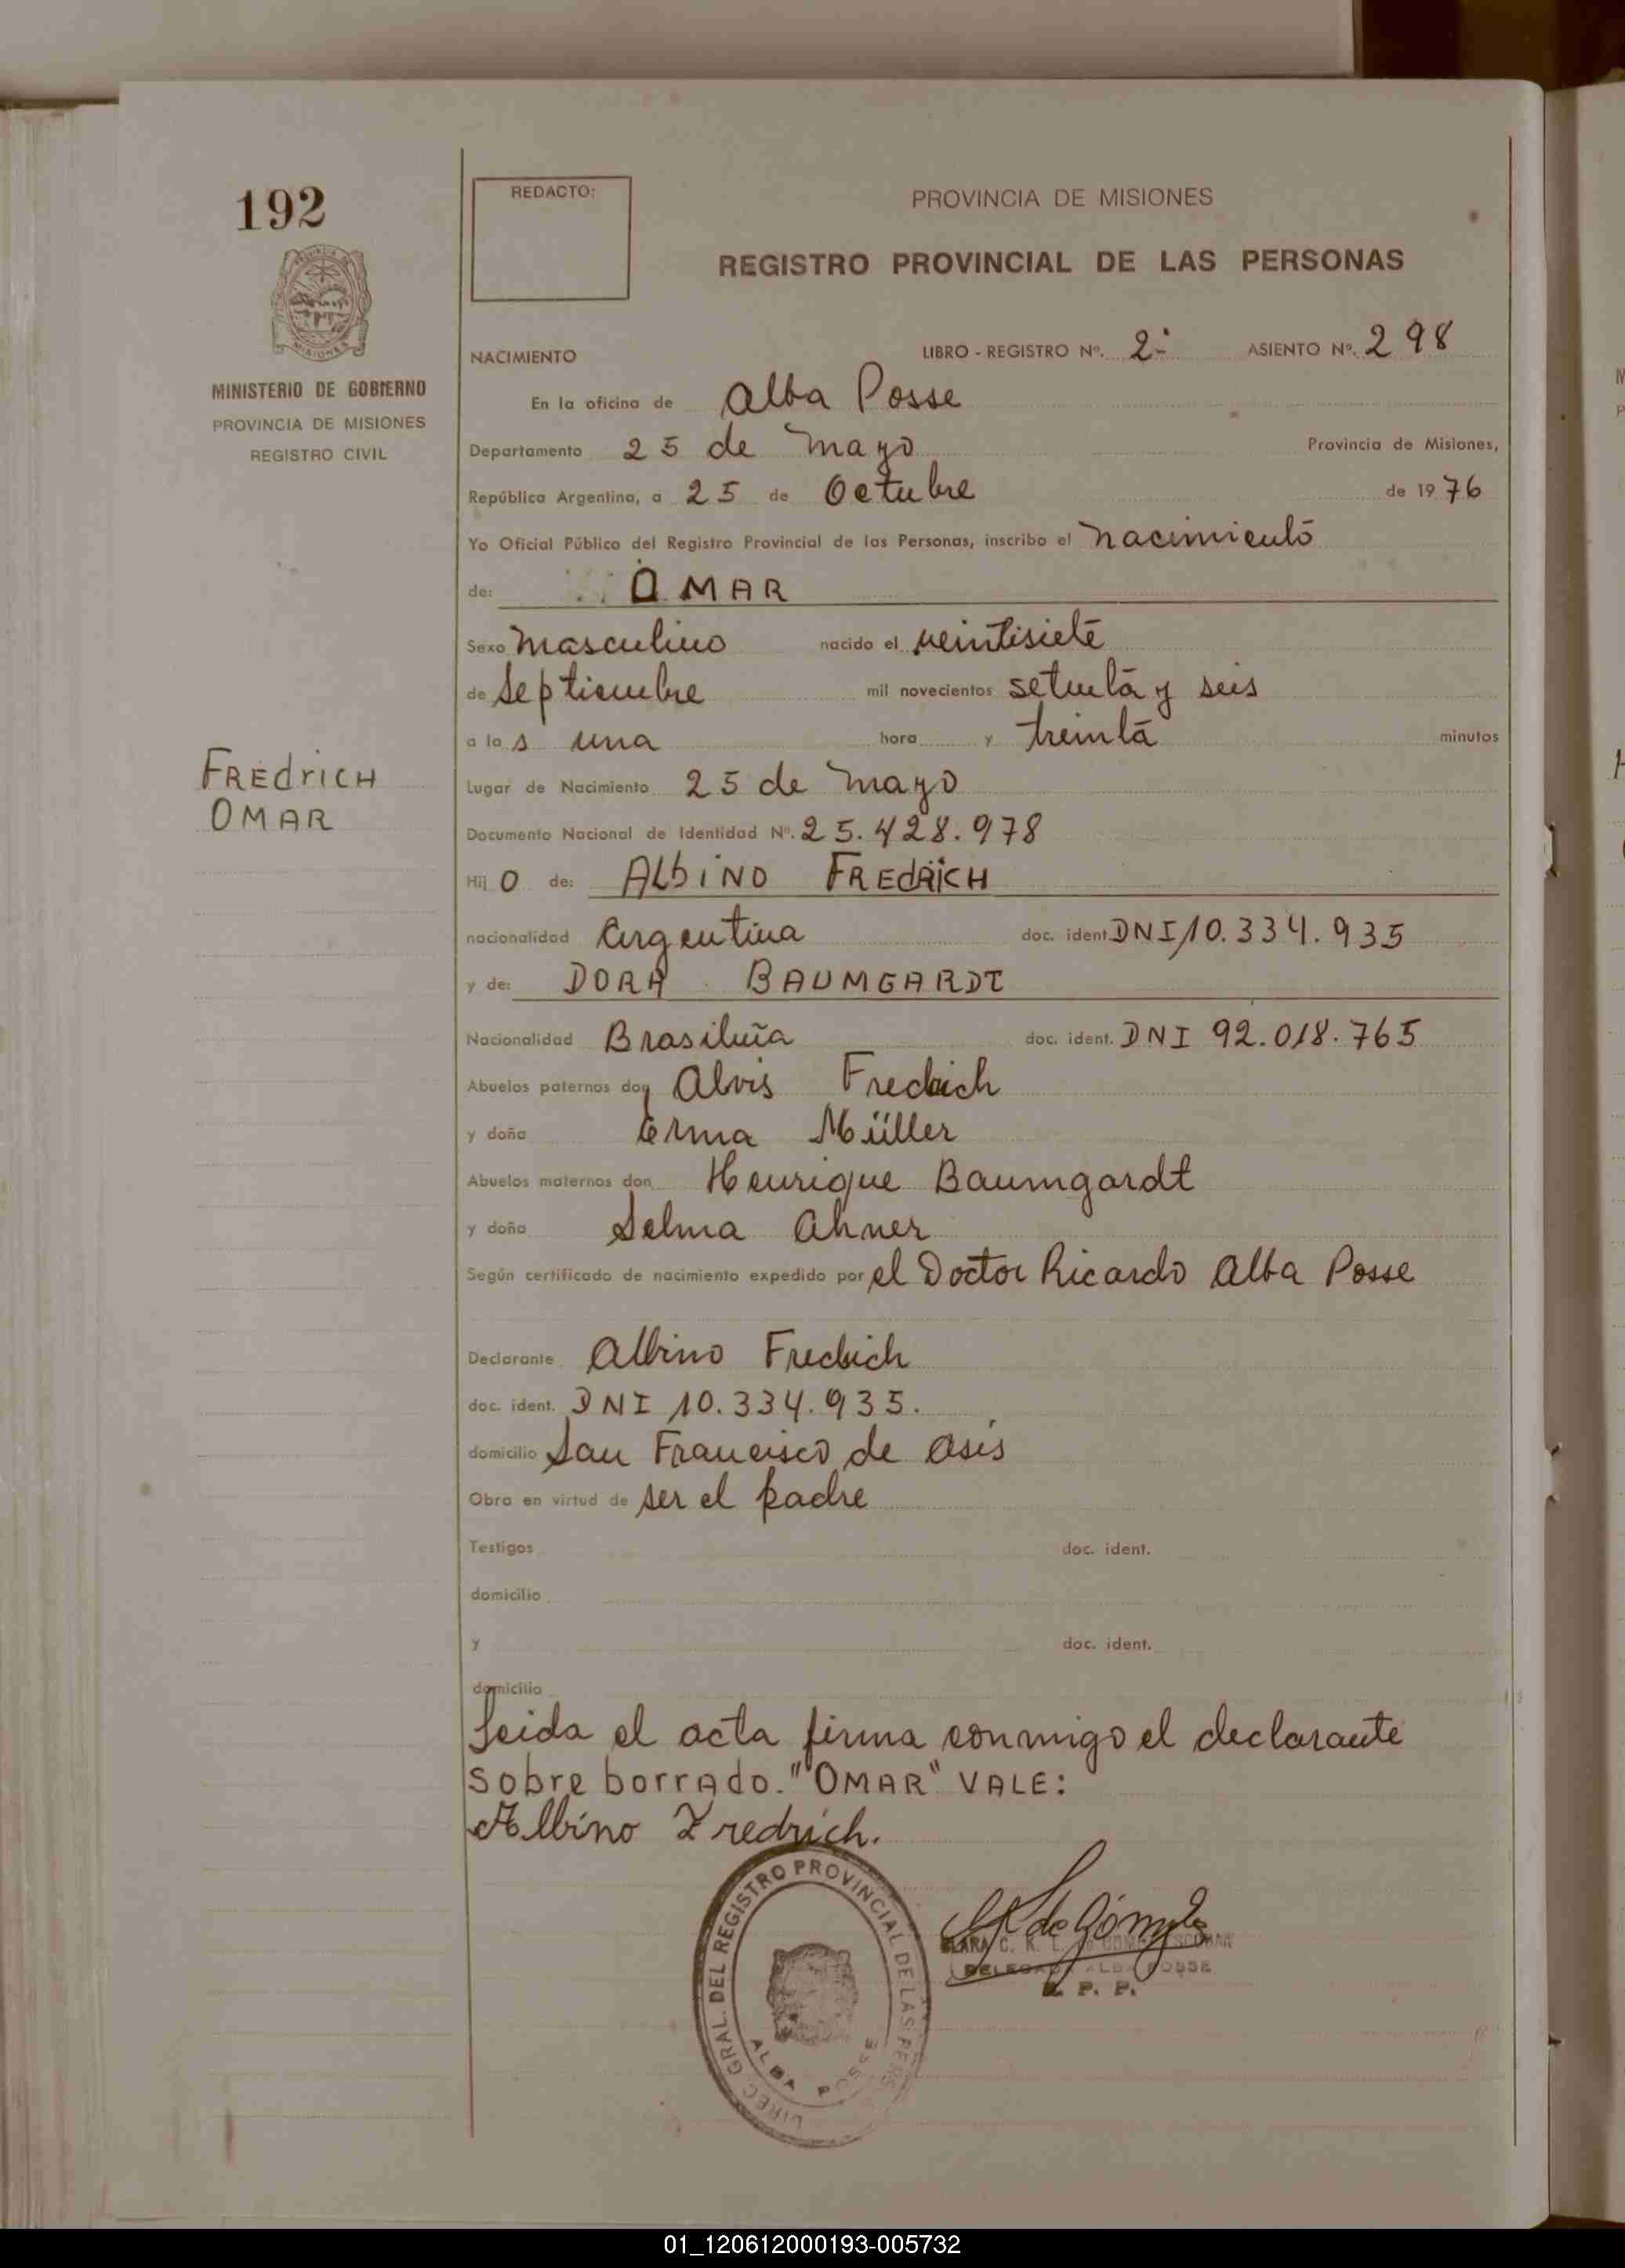 192
MINISTERIO DE GOBIERNO
PROVINCIA DE MISIONES
REGISTRO CIVIL
FREdrICH
OMAR
REDACTO:
PROVINCIA DE MISIONES
REGISTRO PROVINCIAL DE LAS PERSONAS
NACIMIENTO LIBRO - REGISTRO Nº. 2- ASIENTO Nº. 298
En la oficina de Alba Posse
Departamento 25 de Mayo Provincia de Misiones,
República Argentina, a 25 de Octubre de 1976
Yo Oficial Público del Registro Provincial de las Personas, inscribo el nacimiento
de: OMAR
Sexo Masculino nacido el veintisiete
de Septiembre mil novecientos setenta y seis
a la s una hora y treinta minutos
Lugar de Nacimiento 25 de Mayo
Documento Nacional de Identidad Nº. 25.428.978
Hij o de: ALbiNO FREdRiCH
nacionalidad Argentina doc. ident. DNI 10.334.935
y de: DORA BAUMGARDT
Nacionalidad Brasileña doc. ident. DNI 92.018.765
Abuelos paternos don Alvis Fredrich
y doña Erma Müller
Abuelos maternos don Henrique Baumgardt
y doña Selma Ahner
Según certificado de nacimiento expedido por el Doctor Ricardo Alba Posse
Declarante Albino Fredrich
doc. ident. DNI 10.334.935.
domicilio San Francisco de Asís
Obra en virtud de ser el padre
Testigos doc. ident.
domicilio
y doc. ident.
domicilio
Leida el acta firma conmigo el declarante
Sobre borrado. "OMAR" VALE:
Albino Fredrich.
DIREC. GRAL. DEL REGISTRO PROVINCIAL DE LAS PERS
ALBA POSSE
de Gómez
ALBA POSSE
R. P. P.
01_120612000193-005732